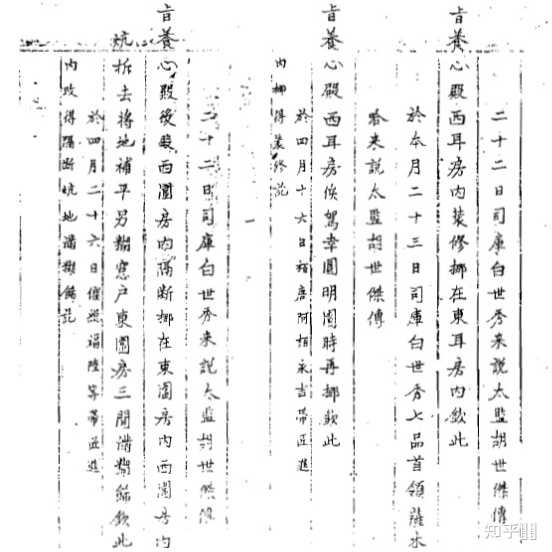 二十二日司庫白世秀来説太監胡世傑傳
旨養心殿西耳房内装修挪在東耳房内欽此
於本月二十三日司庫白世秀七品首領薩木
哈来説太監胡世傑傳
旨養心殿西耳房俟駕幸圓明園時再挪欽此
於四月十六日栢唐阿栢永吉帶匠進
内挪得装修訖
二十二日司庫白世秀来説太監胡世傑傳
旨養心殿後殿西圍房内隔断挪在東圍房内西圍房内
炕拆去将地補平另糊窓户東圍房三間满糊餙欽此
於四月二十六日催總福陞等帶匠進
内改得隔断炕地满糊餙訖
知乎